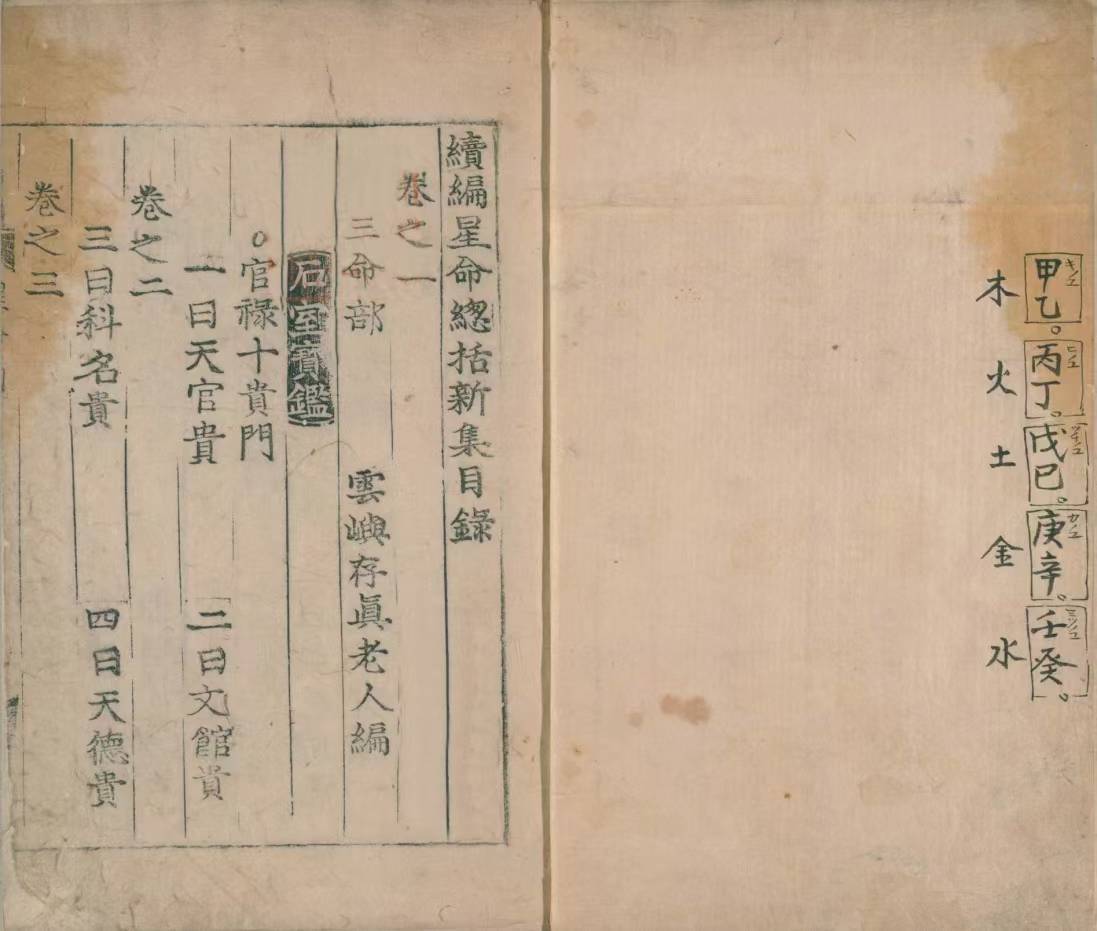 甲乙。丙丁。戊巳。庚辛。壬癸。
木 火 土 金 水
續編星命總括新集目錄
卷之一
三命部 雲嶼存眞老人編
石室寶鑑
○官祿十貴門
一曰天官貴 二曰文館貴
卷之二
三曰科名貴 四曰天德貴
卷之三